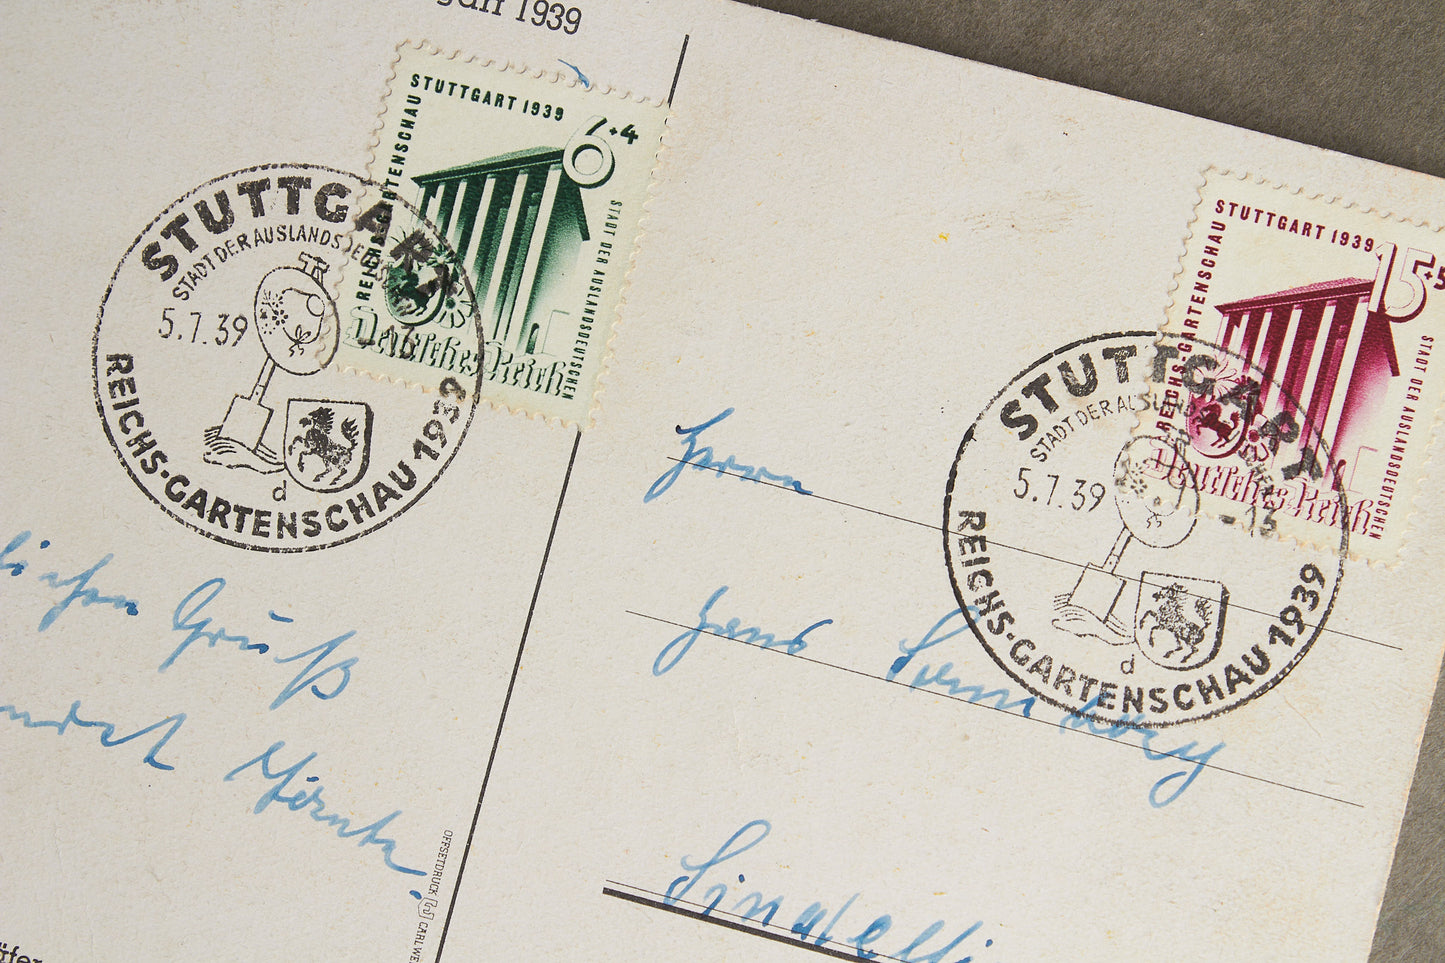 1939
STUTTGART 1939
6+4
REICHS-GARTENSCHAU
STADT DER AUSLANDSDEUTSCHEN
Deutsches Reich
STUTTGART
STADT DER AUSLANDSDEUTSCHEN
5.7.39 -13
d
REICHS-GARTENSCHAU 1939
STUTTGART 1939
15+5
REICHS-GARTENSCHAU
STADT DER AUSLANDSDEUTSCHEN
Deutsches Reich
STUTTGART
STADT DER AUSLANDSDEUTSCHEN
5.7.39 -13
d
REICHS-GARTENSCHAU 1939
lichen Gruß
Herrn
Hans
Sindelfi
OFFSETDRUCK CARL WE